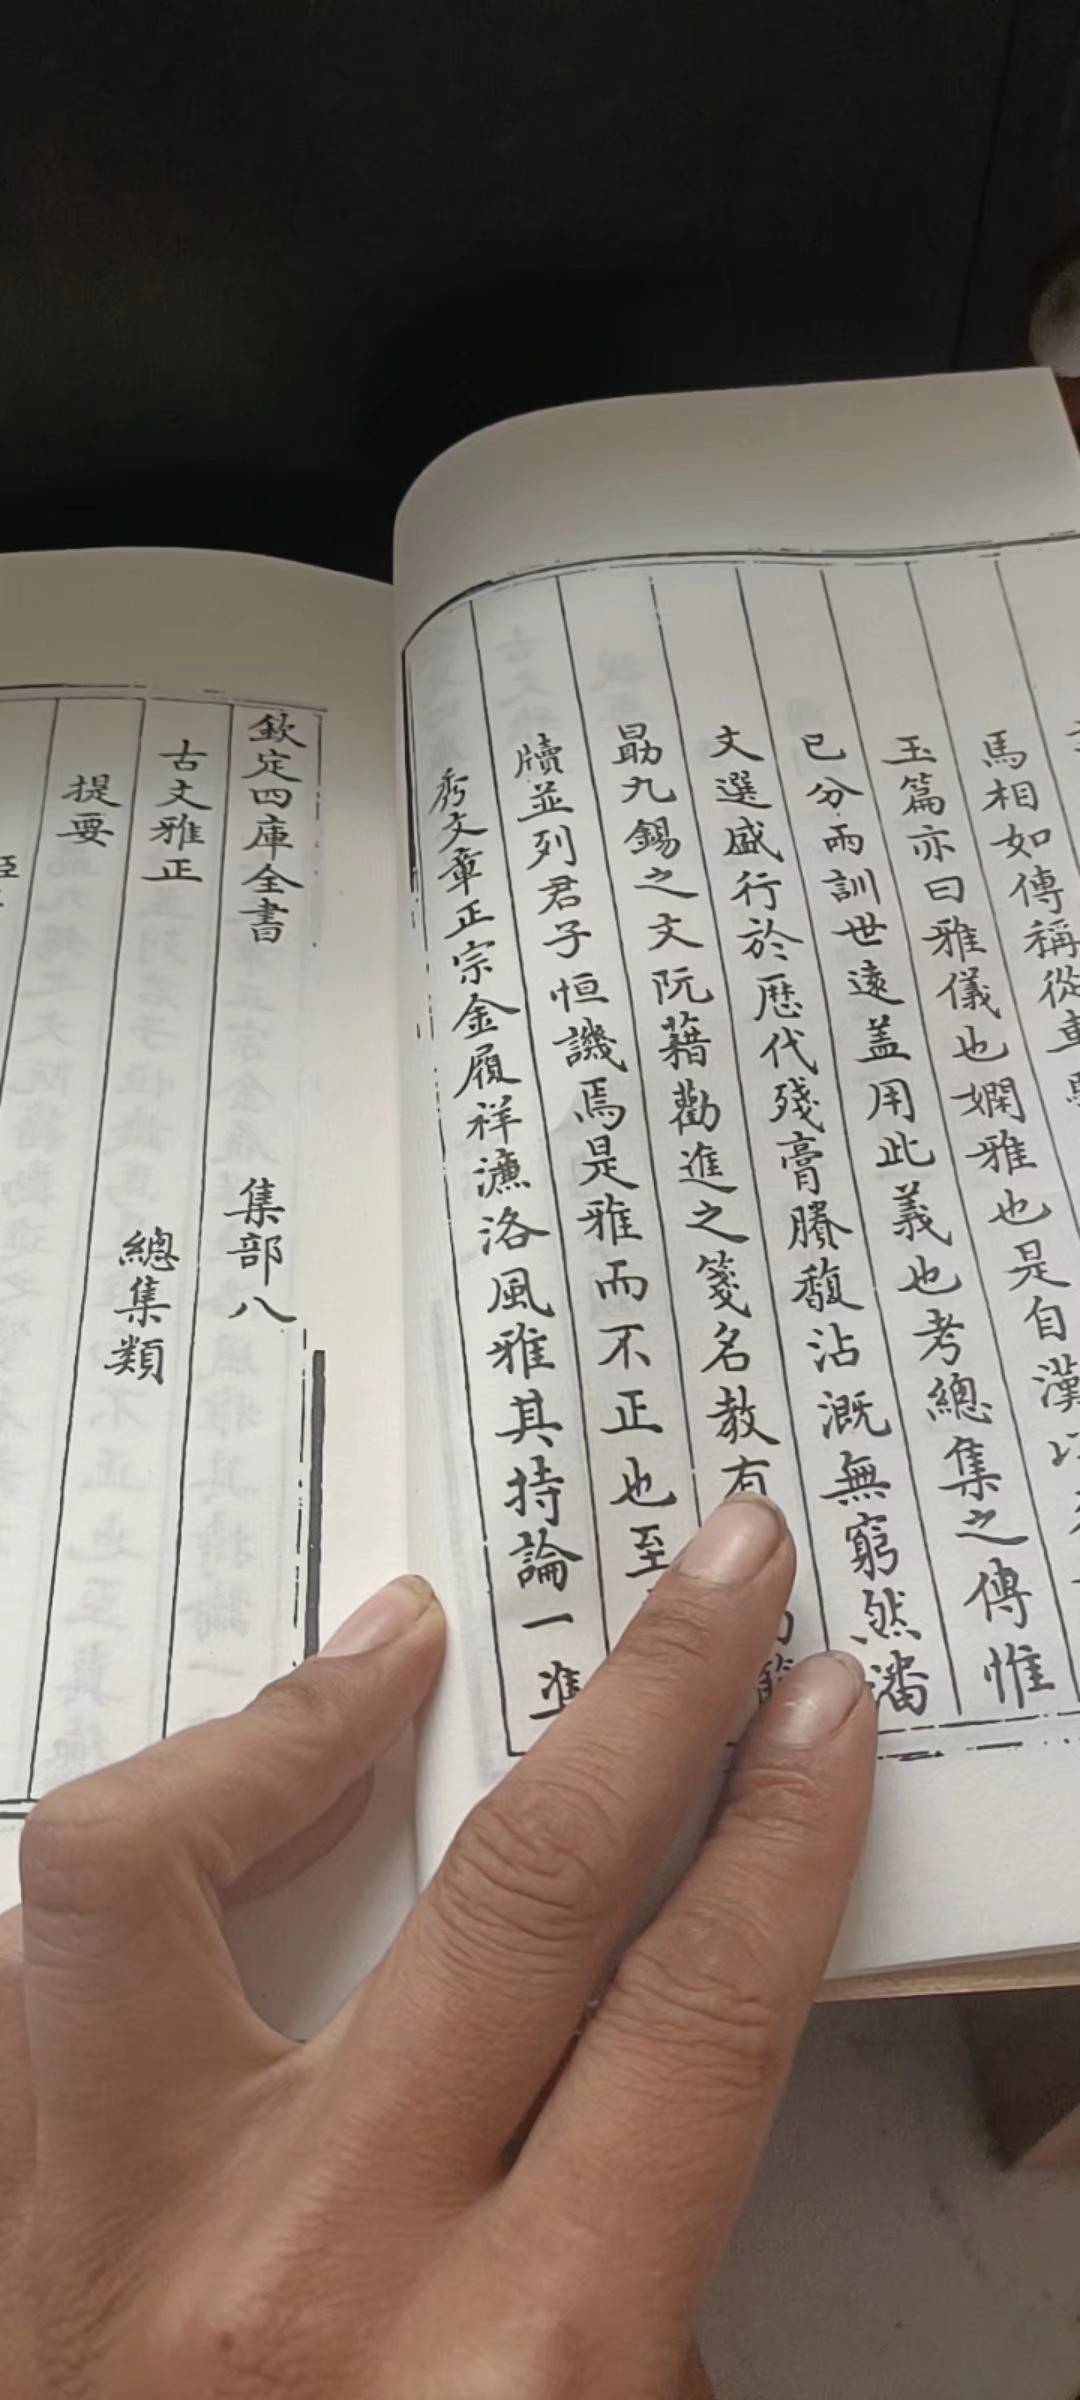 馬相如傳稱從車
玉篇亦曰雅儀也嫻雅也是自漢以
已分兩訓世遠蓋用此義也考總集之傳惟
文選盛行於歷代殘膏賸馥沾溉無窮然潘
勗九錫之文阮籍勸進之箋名教有
牘並列君子恒譏焉是雅而不正也至
秀文章正宗金履祥濂洛風雅其持論一準
欽定四庫全書 集部八
古文雅正 總集類
提要
臣